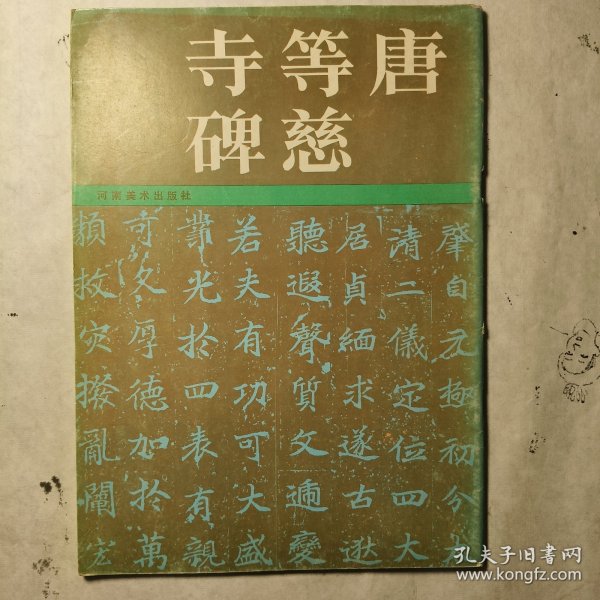 唐
等慈
寺碑
河南美术出版社
肇自元極初分
清二儀定位四大
居貞緬求遂古逖
聽遐聲質文遞變
若夫有功可大盛
業光於四表有親
可久厚德加於萬
類救灾撥亂闡宏
孔夫子旧书网
www.kongfz.com